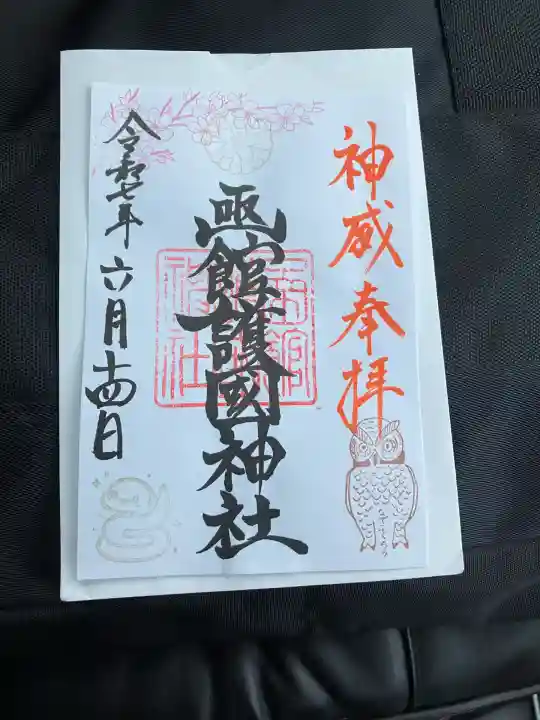 神威奉拝
函館護國神社
令和七年六月十四日